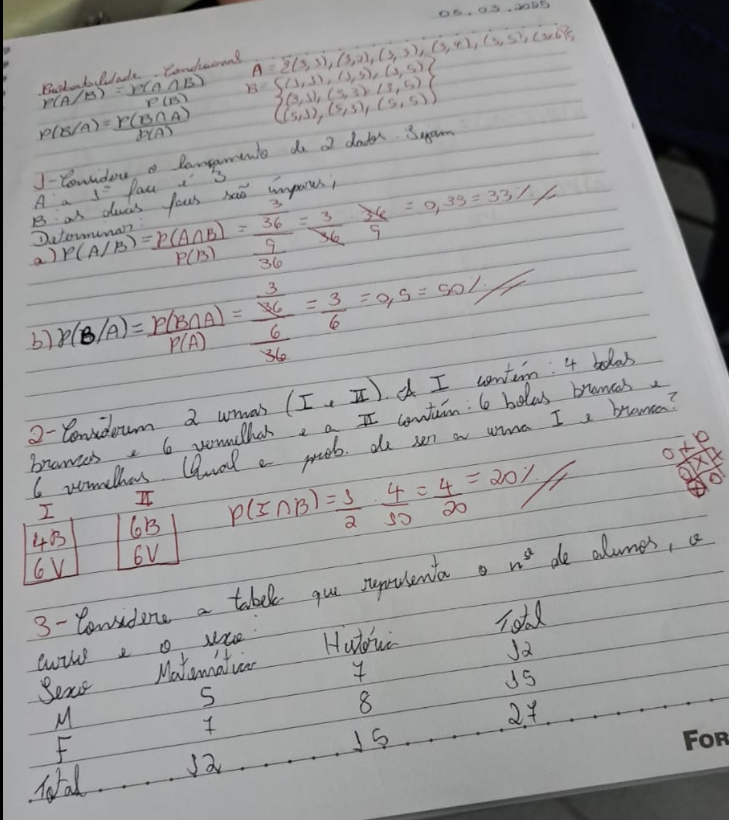 05.03.2025
Probabilidade Condicional
P(A/B) = P(A∩B)
P(B)
P(B/A) = P(B∩A)
P(A)
A = {(3,1), (3,2), (3,3), (3,4), (3,5), (3,6)}
B = {(1,1), (1,3), (1,5)
(3,1), (3,3), (3,5)
(5,1), (5,3), (5,5)}
1-Considere o lançamento de 2 dados. Sejam
A: a 1ª face é 3
B: as duas faces são ímpares;
Determinar:
a) P(A/B) = P(A∩B)/P(B) = 3/36 / 9/36 = 3/36 . 36/9 = 0,33 = 33% //
b) P(B/A) = P(B∩A)/P(A) = 3/36 / 6/36 = 3/6 = 0,5 = 50% //
2-Considerem 2 urnas (I e II). A I contém: 4 bolas
brancas e 6 vermelhas e a II contém: 6 bolas brancas e
6 vermelhas. Qual a prob. de ser a urna I e branca?
I II
4B 6B
6V 6V
P(I∩B) = 1/2 . 4/10 = 4/20 = 20% //
3-Considere a tabela que representa o nº de alunos, o
curso e o sexo:
Sexo Matemática História Total
M 5 7 12
F 7 8 15
Total 12 15 27
FOR